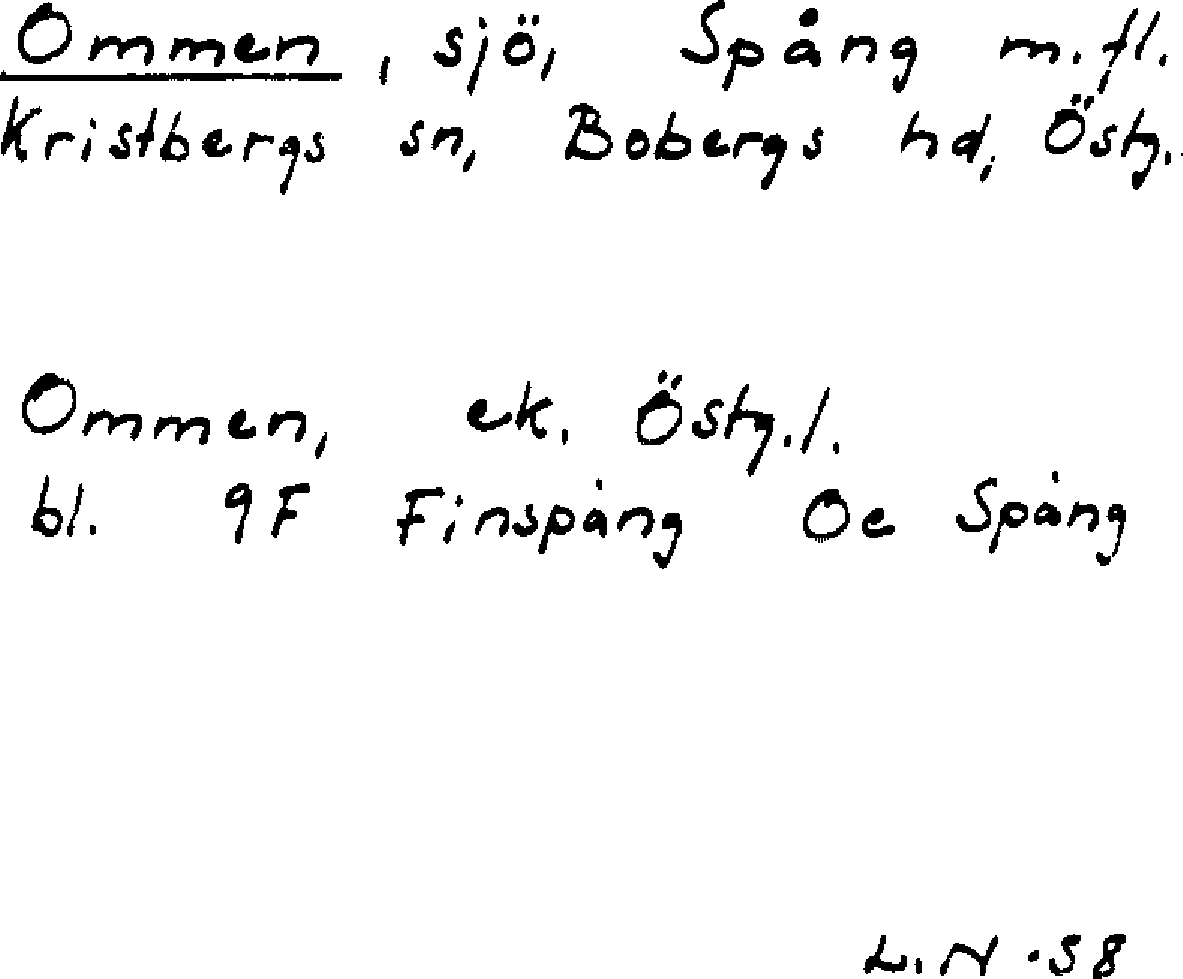 Ommen, sjö, Spång m.fl.
Kristbergs sn, Bobergs hd, Östg.
Ommen, ek. Östg.l.
bl. 9F Finspång Oe Spång
L.N -58